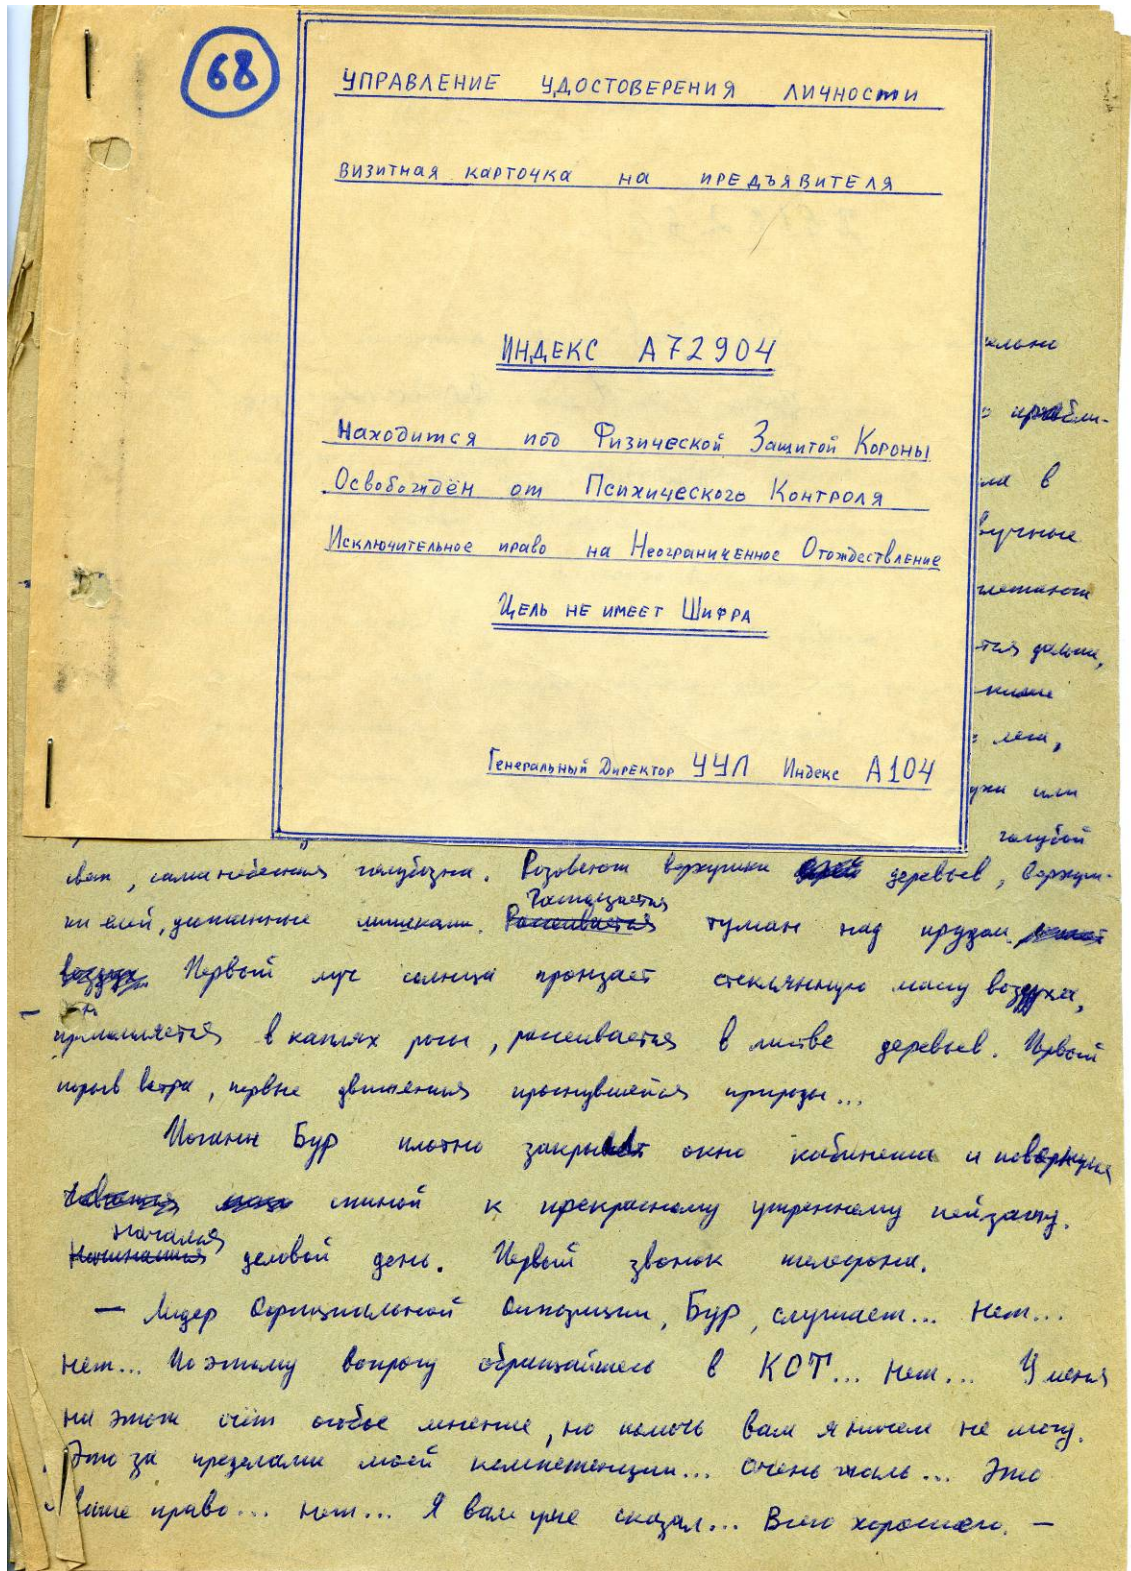 68
УПРАВЛЕНИЕ УДОСТОВЕРЕНИЯ ЛИЧНОСТИ
ВИЗИТНАЯ КАРТОЧКА НА ПРЕДЪЯВИТЕЛЯ
ИНДЕКС А72904
Находится под Физической Защитой Короны
Освобождён от Психического Контроля
Исключительное право на Неограниченное Отождествление
Цель не имеет Шифра
Генеральный Директор УУЛ Индекс А104
в
вучные
тся дальше,
леса,
или
голубой
свет, сама небесная голубизна. Розовеют верхушки деревьев, верхуш-
ки елей, шишками. Рассеивается туман над прудом.
воздух Первый луч солнца пронзает стеклянную массу воздуха,
преломляется в каплях росы, рассеивается в листве деревьев. Первый
порыв ветра, первые движения проснувшейся природы...
Иоганн Бур плотно закрыл окно кабинета и повернулся
спиной к прекрасному утреннему пейзажу.
Начался
Начинался деловой день. Первый звонок телефона.
— Лидер Официальной Оппозиции, Бур, слушает... Нет...
нет... По этому вопросу обращайтесь в КОТ... Нет... У меня
на этот счёт особое мнение, но помочь вам я ничем не могу.
Это за пределами моей компетенции... Очень жаль... Это
ваше право... Нет... Я вам уже сказал... Всего хорошего. —